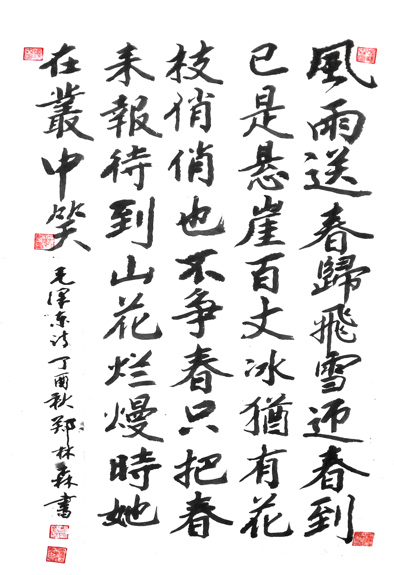 風雨送春歸飛雪迎春到
已是悬崖百丈冰猶有花
枝俏俏也不争春只把春
来報待到山花烂熳時她
在叢中笑
毛泽东诗丁酉秋郑林森書